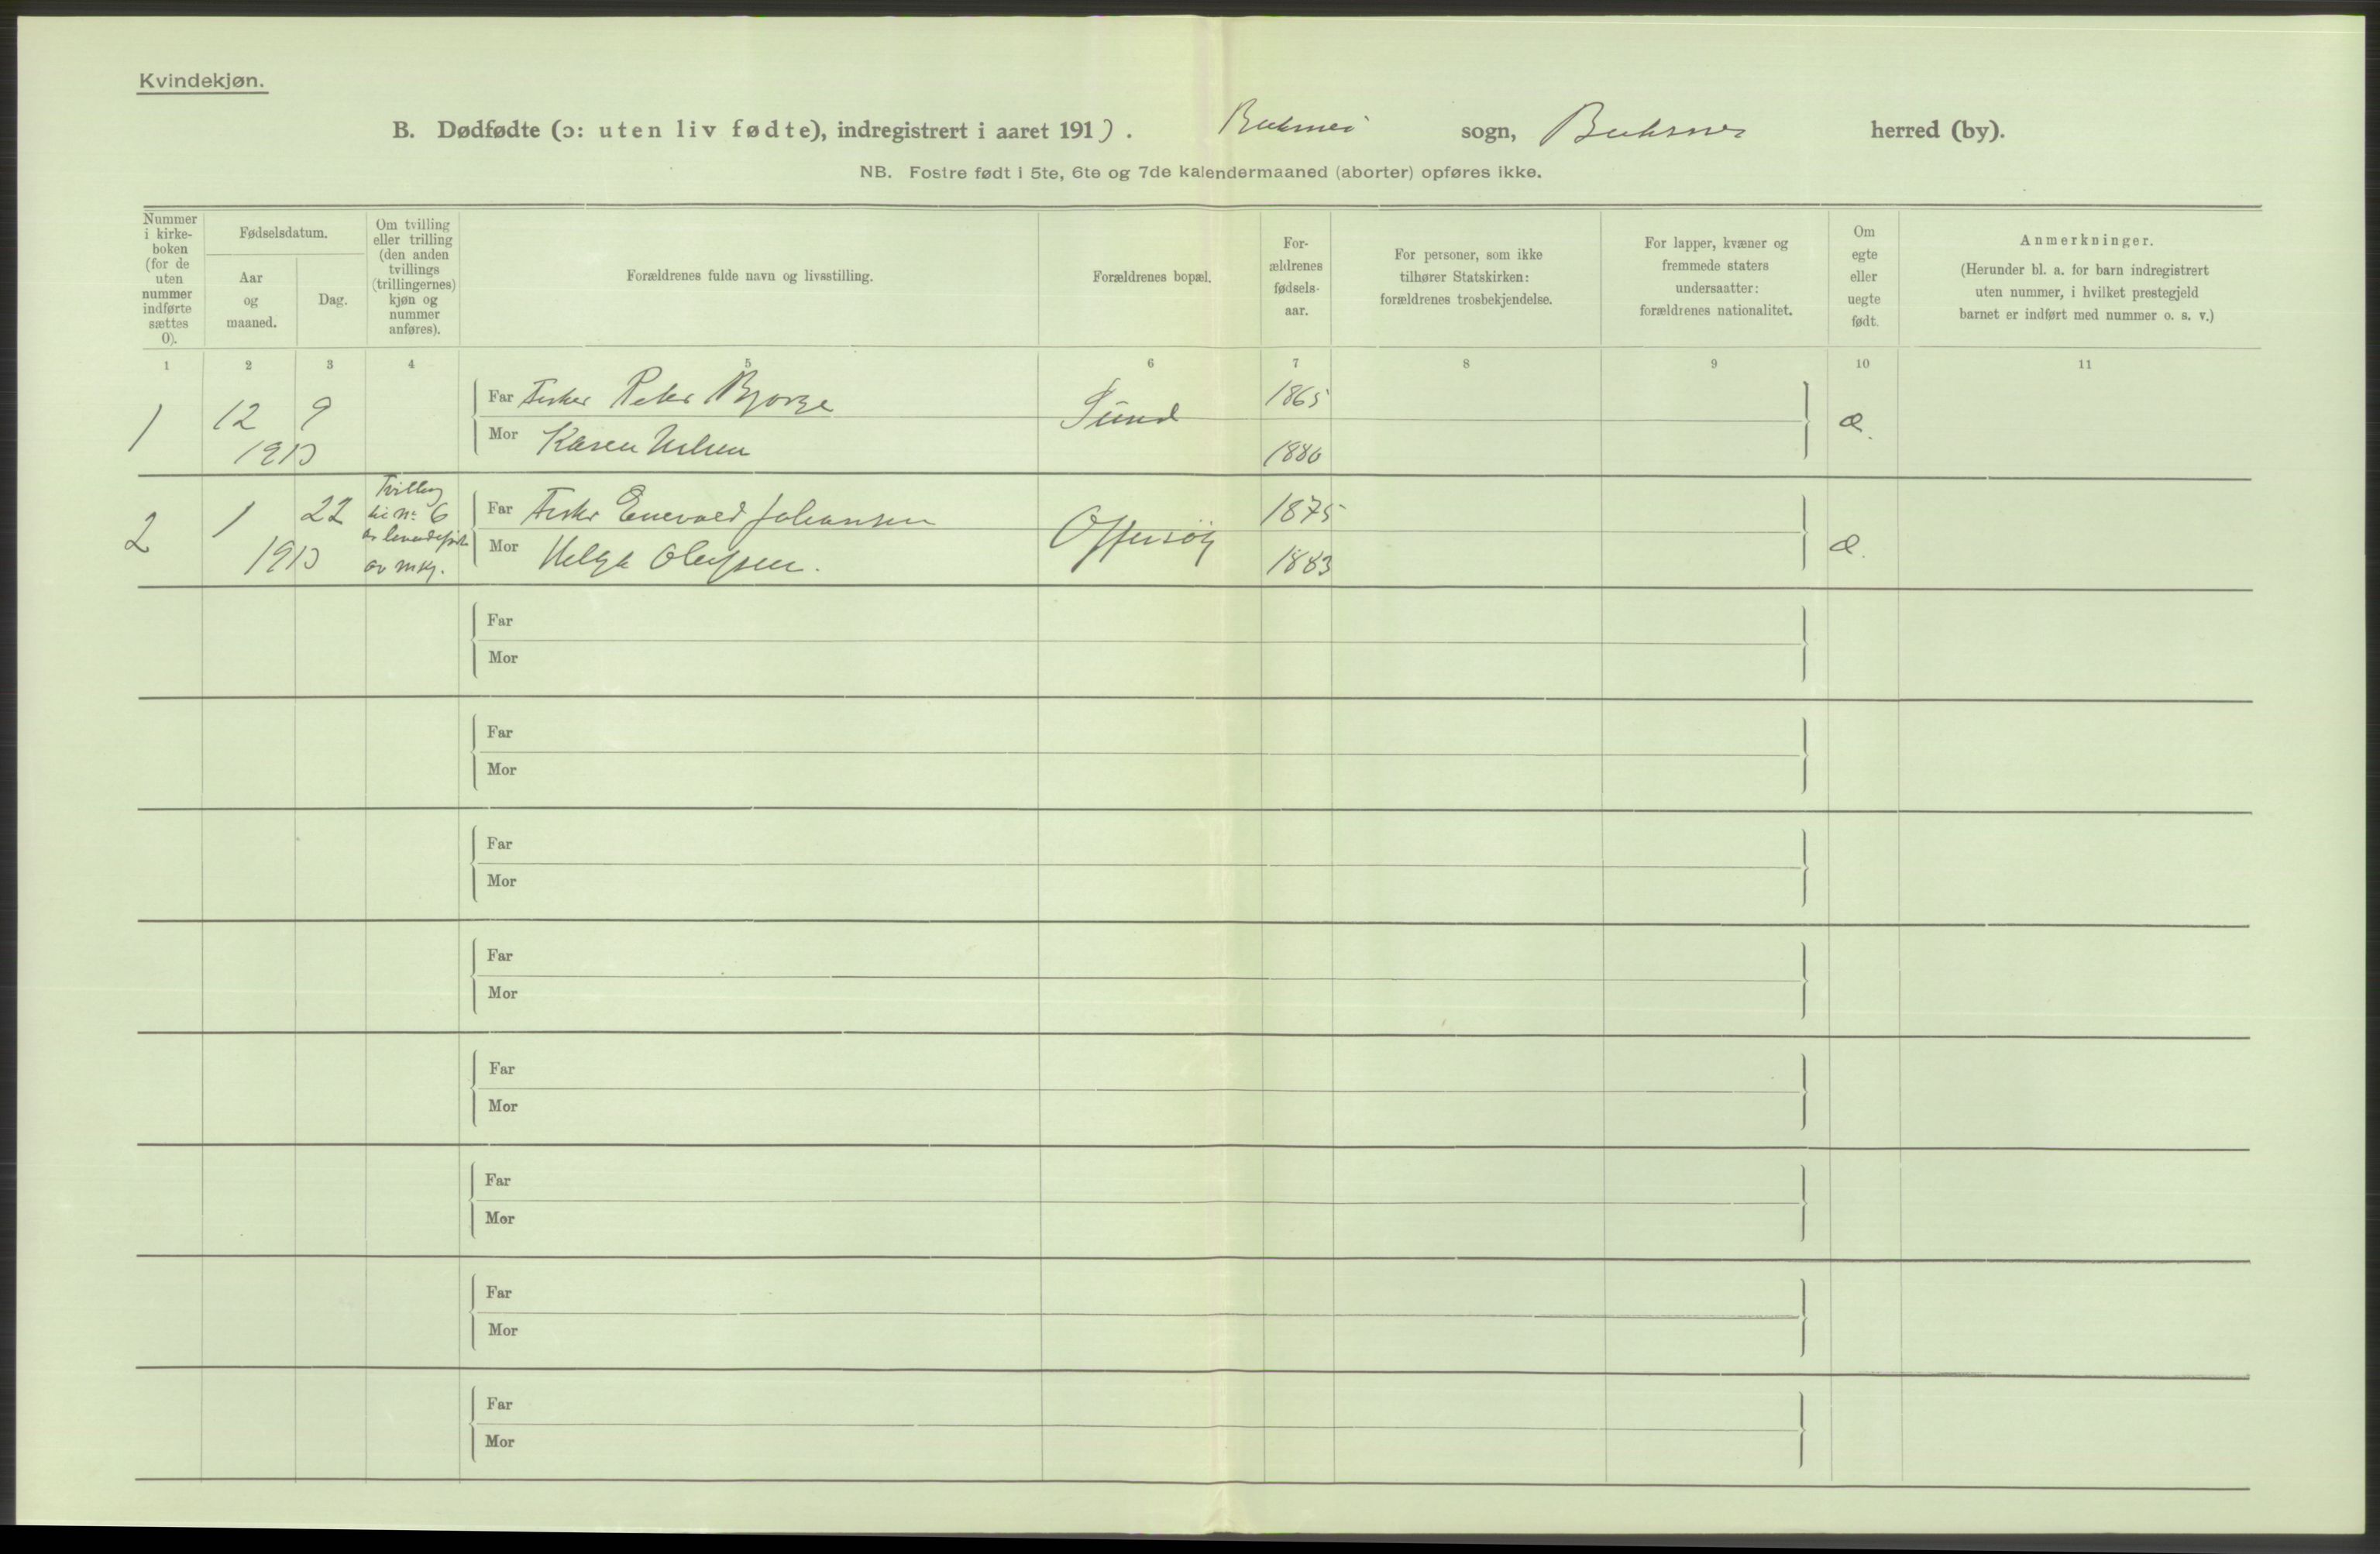 Kvindekjøn.
B. Dødfødte (ɔ: uten liv fødte), indregistrert i aaret 191). Buksnes sogn, Buksnes herred (by).
NB. Fostre født i 5te, 6te og 7de kalendermaaned (aborter) opføres ikke.
Nummer
i kirke-
boken
(for de
uten
nummer
indførte
sættes
0).
Fødselsdatum.
Aar
og
maaned.
Dag.
Om tvilling
eller trilling
(den anden
tvillings
(trillingernes)
kjøn og
nummer
anføres).
Forældrenes fulde navn og livsstilling.
Forældrenes bopæl.
For-
ældrenes
fødsels-
aar.
For personer, som ikke
tilhører Statskirken:
forældrenes trosbekjendelse.
For lapper, kvæner og
fremmede staters
undersaatter:
forældrenes nationalitet.
Om
egte
eller
uegte
født.
Anmerkninger.
(Herunder bl. a. for barn indregistrert
uten nummer, i hvilket prestegjeld
barnet er indført med nummer o. s. v.)
1 2 3 4 5 6 7 8 9 10 11
1 12 9 Far Fisker Peder Bjørge Sund 1865 æ.
191) Mor Karen Nilsen 1880
2 1 22 Tvilling til No 6 Far Fisker Enevald Johansen Offersøy 1875 æ.
191) av levendefødte av mkj. Mor Helga Olufsen. 1883
Far
Mor
Far
Mor
Far
Mor
Far
Mor
Far
Mor
Far
Mor
Far
Mor
Far
Mor